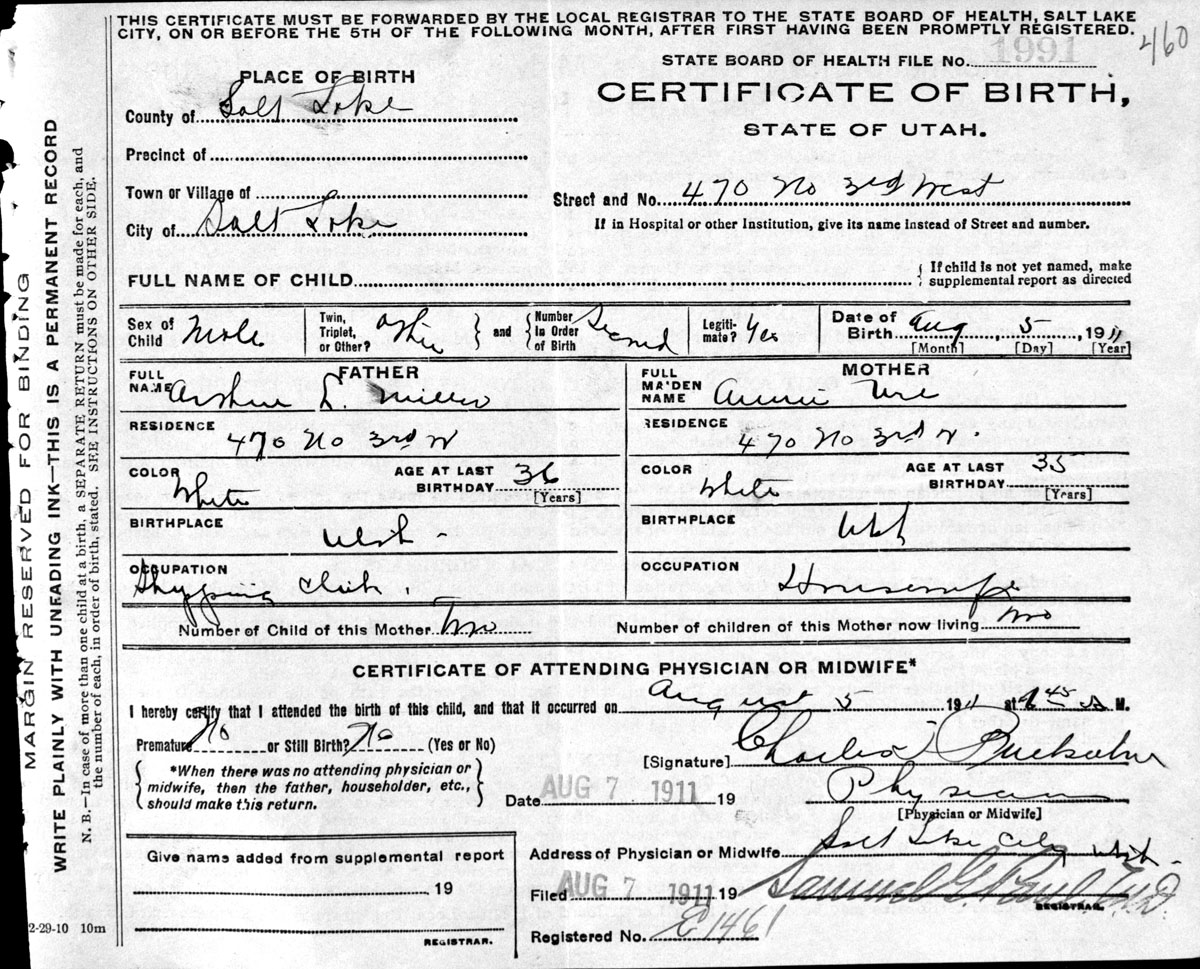 THIS CERTIFICATE MUST BE FORWARDED BY THE LOCAL REGISTRAR TO THE STATE BOARD OF HEALTH, SALT LAKE
CITY, ON OR BEFORE THE 5TH OF THE FOLLOWING MONTH, AFTER FIRST HAVING BEEN PROMPTLY REGISTERED.
460
STATE BOARD OF HEALTH FILE No. 1991
CERTIFICATE OF BIRTH,
STATE OF UTAH.
PLACE OF BIRTH
County of Salt Lake
Precinct of
Town or Village of
City of Salt Lake
Street and No. 470 No 3rd West
If in Hospital or other Institution, give its name instead of Street and number.
FULL NAME OF CHILD
{ If child is not yet named, make
supplemental report as directed
Sex of Child Male
Twin, Triplet, or Other? Other } and { Number in Order of Birth Second
Legiti-mate? Yes
Date of Birth Aug, 5, 1911
[Month] [Day] [Year]
FATHER
FULL NAME Arthur L. Miller
RESIDENCE
470 No 3rd W
COLOR White
AGE AT LAST BIRTHDAY 36
[Years]
BIRTHPLACE
Utah -
OCCUPATION
Shipping Clerk.
MOTHER
FULL MAIDEN NAME Annie Ure
RESIDENCE
470 No 3rd W.
COLOR White
AGE AT LAST BIRTHDAY 35
[Years]
BIRTHPLACE
Utah
OCCUPATION
Housewife
Number of Child of this Mother Two
Number of children of this Mother now living Two
CERTIFICATE OF ATTENDING PHYSICIAN OR MIDWIFE*
I hereby certify that I attended the birth of this child, and that it occurred on August 5 1911 at 45 A M.
Premature No or Still Birth? No (Yes or No)
{ *When there was no attending physician or
midwife, then the father, householder, etc.,
should make this return. }
[Signature] Charles
Date AUG 7 1911 19
Physician
[Physician or Midwife]
Address of Physician or Midwife Salt Lake City Utah -
Filed AUG 7 1911 19 Samuel G Paul M.D.
REGISTRAR.
Registered No. E 1461
Give name added from supplemental report
19
REGISTRAR.
2-29-10 10m
MARGIN RESERVED FOR BINDING
WRITE PLAINLY WITH UNFADING INK—THIS IS A PERMANENT RECORD
N. B.—In case of more than one child at a birth, a SEPARATE RETURN must be made for each, and
the number of each, in order of birth, stated. SEE INSTRUCTIONS ON OTHER SIDE.